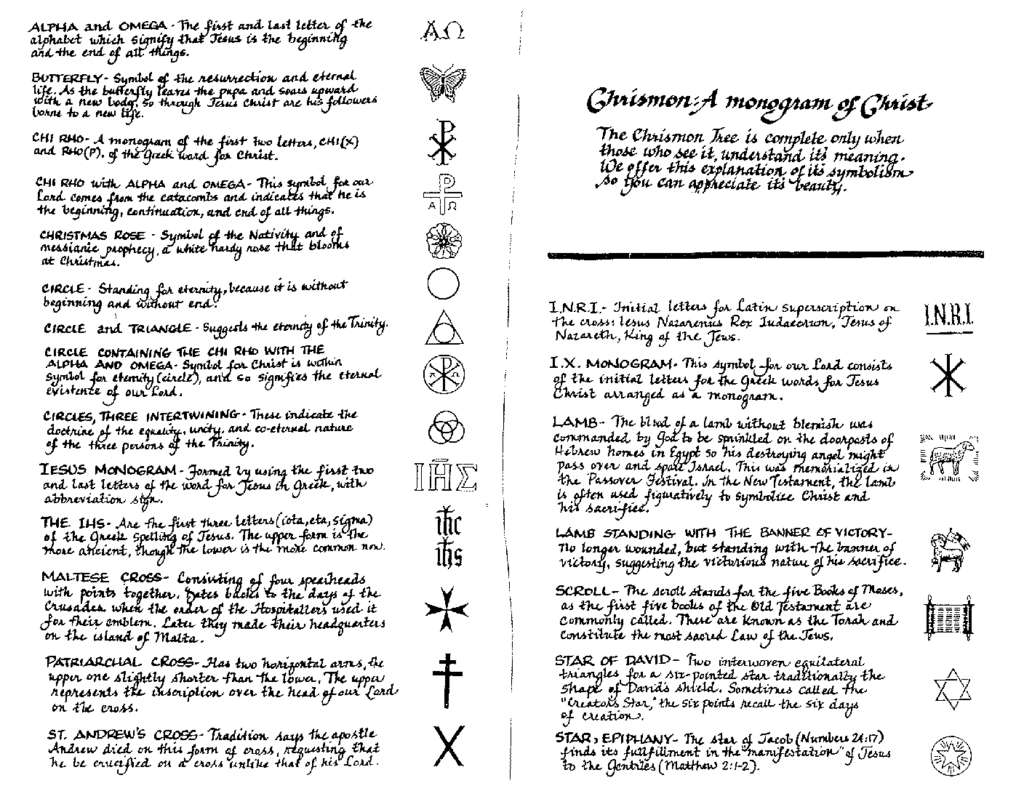 ALPHA and OMEGA - The first and last letter of the
alphabet which signify that Jesus is the beginning
and the end of all things.
ΑΩ
BUTTERFLY - Symbol of the resurrection and eternal
life. As the butterfly leaves the pupa and soars upward
with a new body, so through Jesus Christ are his followers
borne to a new life.
CHI RHO - A monogram of the first two letters, CHI(X)
and RHO(P), of the Greek word for Christ.
CHI RHO with ALPHA and OMEGA - This symbol for our
Lord comes from the catacombs and indicates that he is
the beginning, continuation, and end of all things.
Α Ω
CHRISTMAS ROSE - Symbol of the Nativity and of
messianic prophecy, a white hardy rose that blooms
at Christmas.
CIRCLE - Standing for eternity, because it is without
beginning and without end.
CIRCLE and TRIANGLE - Suggests the eternity of the Trinity.
CIRCLE CONTAINING THE CHI RHO WITH THE
ALPHA AND OMEGA - Symbol for Christ is within
symbol for eternity (circle), and so signifies the eternal
existence of our Lord.
CIRCLES, THREE INTERTWINING - These indicate the
doctrine of the equality, unity, and co-eternal nature
of the three persons of the Trinity.
IESUS MONOGRAM - Formed by using the first two
and last letters of the word for Jesus in Greek, with
abbreviation sign.
ΙΗΣ
THE IHS - Are the first three letters (iota, eta, sigma)
of the Greek spelling of Jesus. The upper form is the
more ancient, though the lower is the more common now.
ihc
ihs
MALTESE CROSS - Consisting of four spearheads
with points together. Dates back to the days of the
Crusades when the order of the Hospitallers used it
for their emblem. Later they made their headquarters
on the island of Malta.
PATRIARCHAL CROSS - Has two horizontal arms, the
upper one slightly shorter than the lower. The upper
represents the inscription over the head of our Lord
on the cross.
ST. ANDREW'S CROSS - Tradition says the apostle
Andrew died on this form of cross, requesting that
he be crucified on a cross unlike that of his Lord.
Chrismon: A monogram of Christ
The Chrismon Tree is complete only when
those who see it, understand its meaning.
We offer this explanation of its symbolism
so you can appreciate its beauty.
I.N.R.I. - Initial letters for Latin superscription on
the cross: Iesus Nazarenius Rex Iudaeorum, Jesus of
Nazareth, King of the Jews.
I.N.R.I
I.X. MONOGRAM - This symbol for our Lord consists
of the initial letters for the Greek words for Jesus
Christ arranged as a monogram.
LAMB - The blood of a lamb without blemish was
commanded by God to be sprinkled on the doorposts of
Hebrew homes in Egypt so his destroying angel might
pass over and spare Israel. This was memorialized in
the Passover Festival. In the New Testament, the lamb
is often used figuratively to symbolize Christ and
his sacrifice.
LAMB STANDING WITH THE BANNER OF VICTORY -
No longer wounded, but standing with the banner of
victory, suggesting the victorious nature of his sacrifice.
SCROLL - The scroll stands for the five Books of Moses,
as the first five books of the Old Testament are
commonly called. These are known as the Torah and
constitute the most sacred Law of the Jews.
STAR OF DAVID - Two interwoven equilateral
triangles for a six-pointed star traditionally the
shape of David's shield. Sometimes called the
"Creator's Star," the six points recall the six days
of creation.
STAR, EPIPHANY - The star of Jacob (Numbers 24:17)
finds its fullfillment in the "manifestation" of Jesus
to the Gentiles (Matthew 2:1-2).